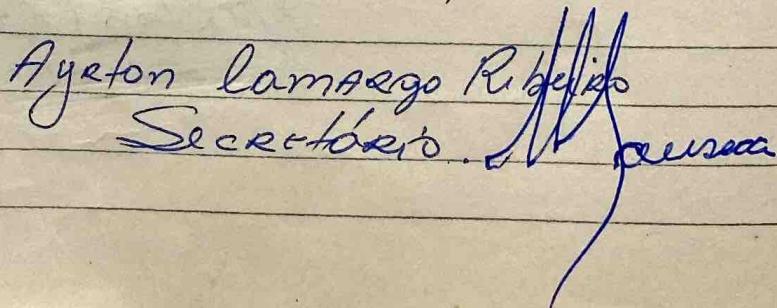 Ayrton Camargo Ribeiro
Secretário.